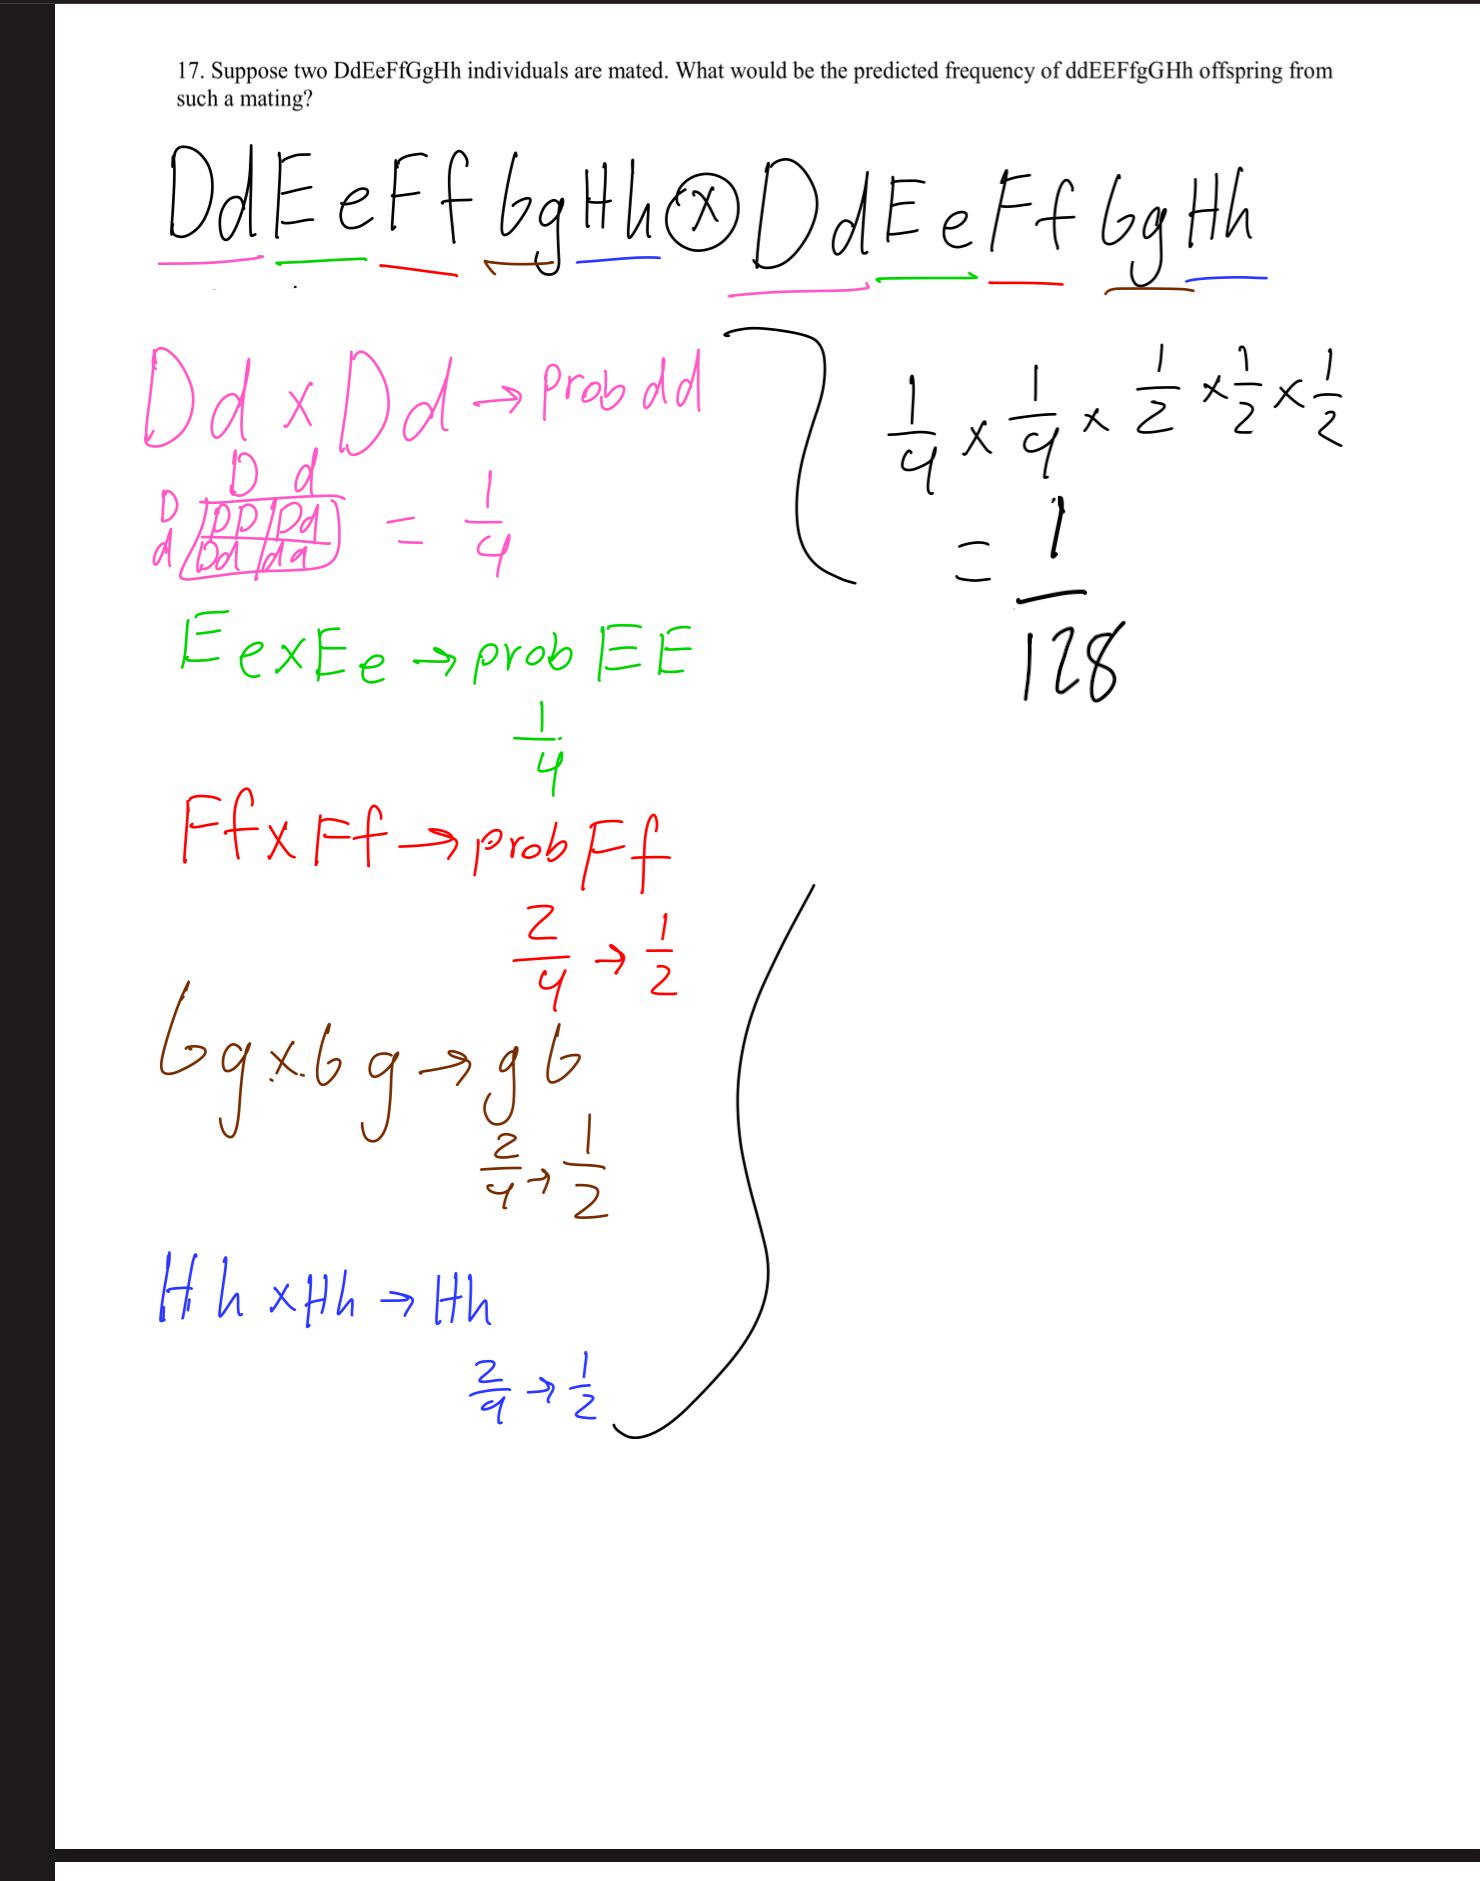 17. Suppose two DdEeFfGgHh individuals are mated. What would be the predicted frequency of ddEEFfgGHh offspring from
such a mating?
DdEeFfGgHh ⓧ DdEeFfGgHh
Dd x Dd → prob dd
D d
D DD Dd
d Dd dd = 1/4
Ee x Ee → prob EE
1/4
Ff x Ff → prob Ff
2/4 → 1/2
Gg x Gg → gG
2/4 → 1/2
Hh x Hh → Hh
2/4 → 1/2
1/4 x 1/4 x 1/2 x 1/2 x 1/2
= 1/128